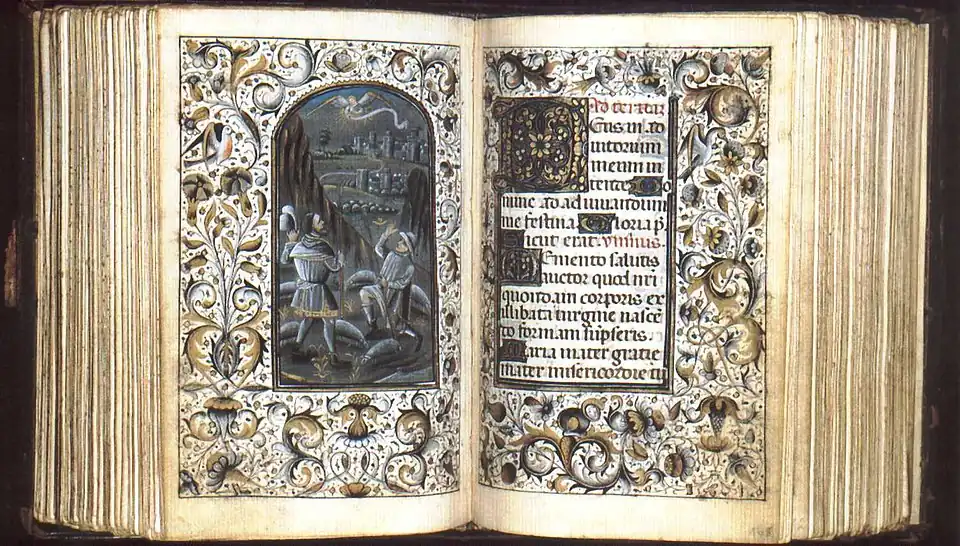 Ad tertiam
Deus in ad
iutorium
meum in
tende Do
mine ad adiuvandum
me festina Gloria p̄
Sicut erat. Ymnus.
Memento salutis
auctor quod nr̄i
quondam corporis ex
illibata virgine nascē
do formam sūpseris.
Maria mater gratie
mater misericordie tu